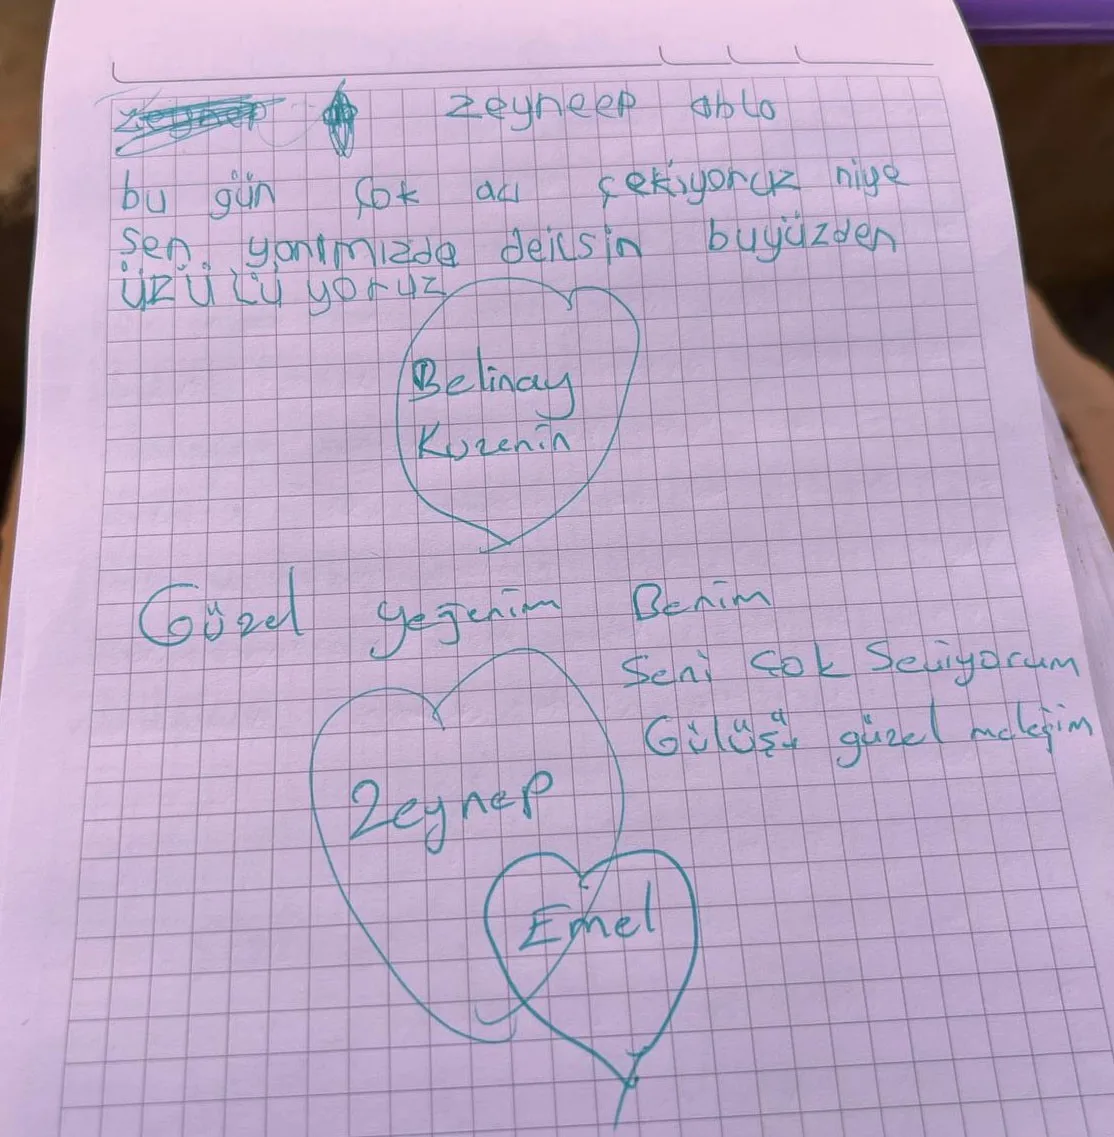 zeyneep abla
bu gün çok acı çekiyoruz niye
sen yanımızda deilsin buyüzden
üzülüyoruz
Belinay
Kuzenin
Güzel yeğenim Benim
Seni çok Seviyorum
Gülüşü güzel meleğim
Zeynep
Emel